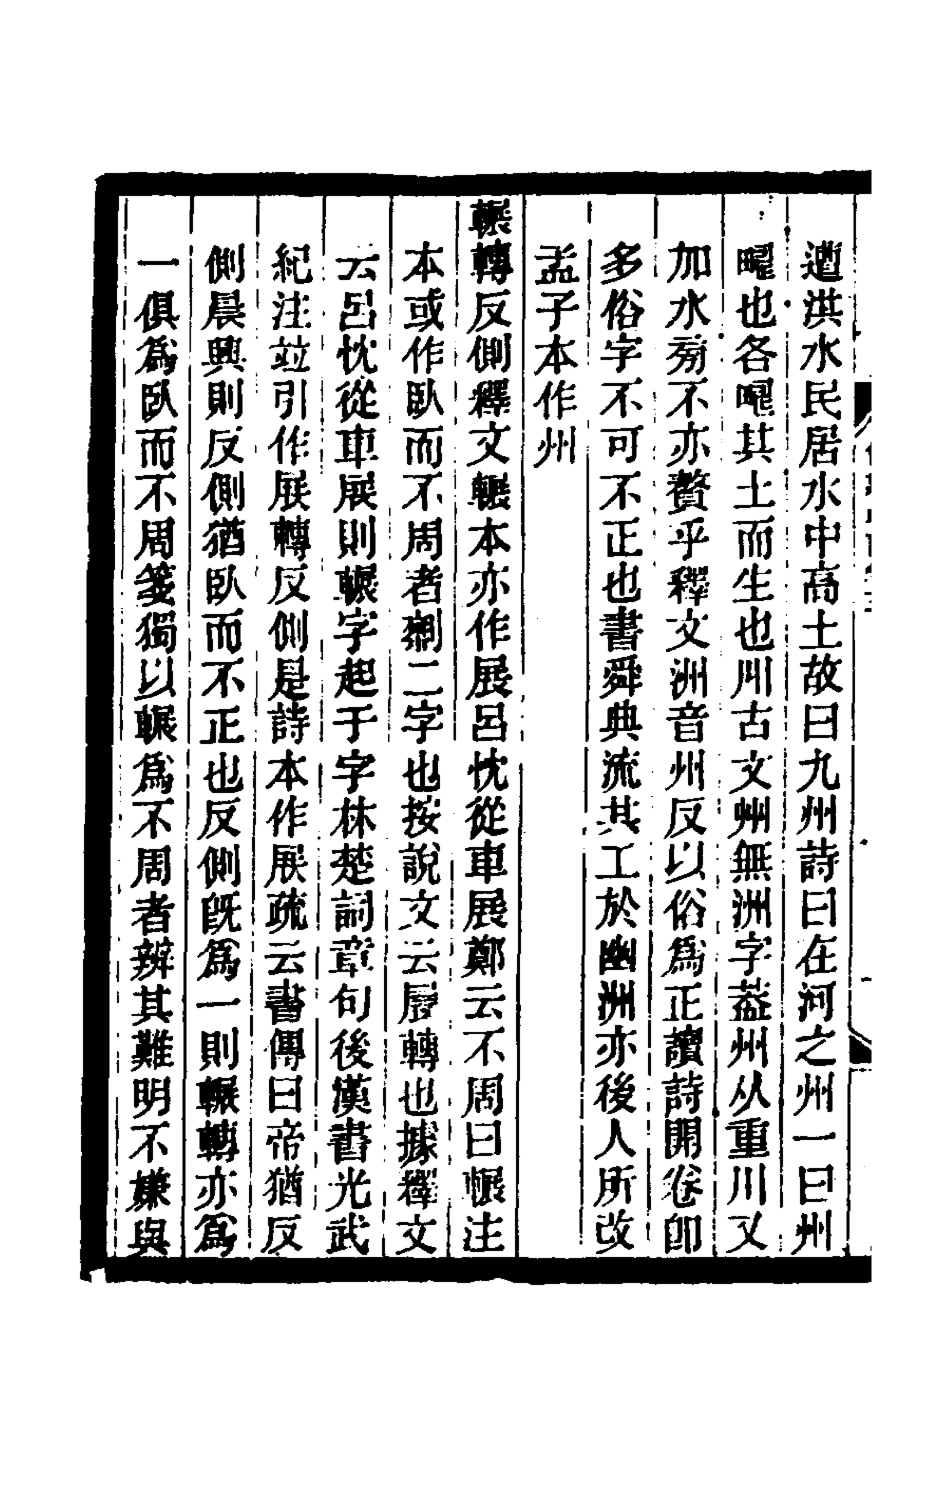 遭洪水民居水中高土故曰九州詩曰在河之州一曰州
疇也各疇其土而生也川古文州無洲字葢州从重川又
加水㫄不亦贅乎釋文洲音州反以俗爲正讀詩開卷卽
多俗字不可不正也書舜典流共工於幽洲亦後人所改
孟子本作州
輾轉反側釋文輾本亦作展呂忱從車展鄭云不周曰輾注
本或作臥而不周者剩二字也按說文云展轉也據釋文
云呂忱從車展則輾字起于字林楚詞章句後漢書光武
紀注竝引作展轉反側是詩本作展疏云書傳曰帝猶反
側晨興則反側猶臥而不正也反側旣爲一則輾轉亦爲
一俱爲臥而不周箋獨以輾爲不周者辨其難明不嫌與